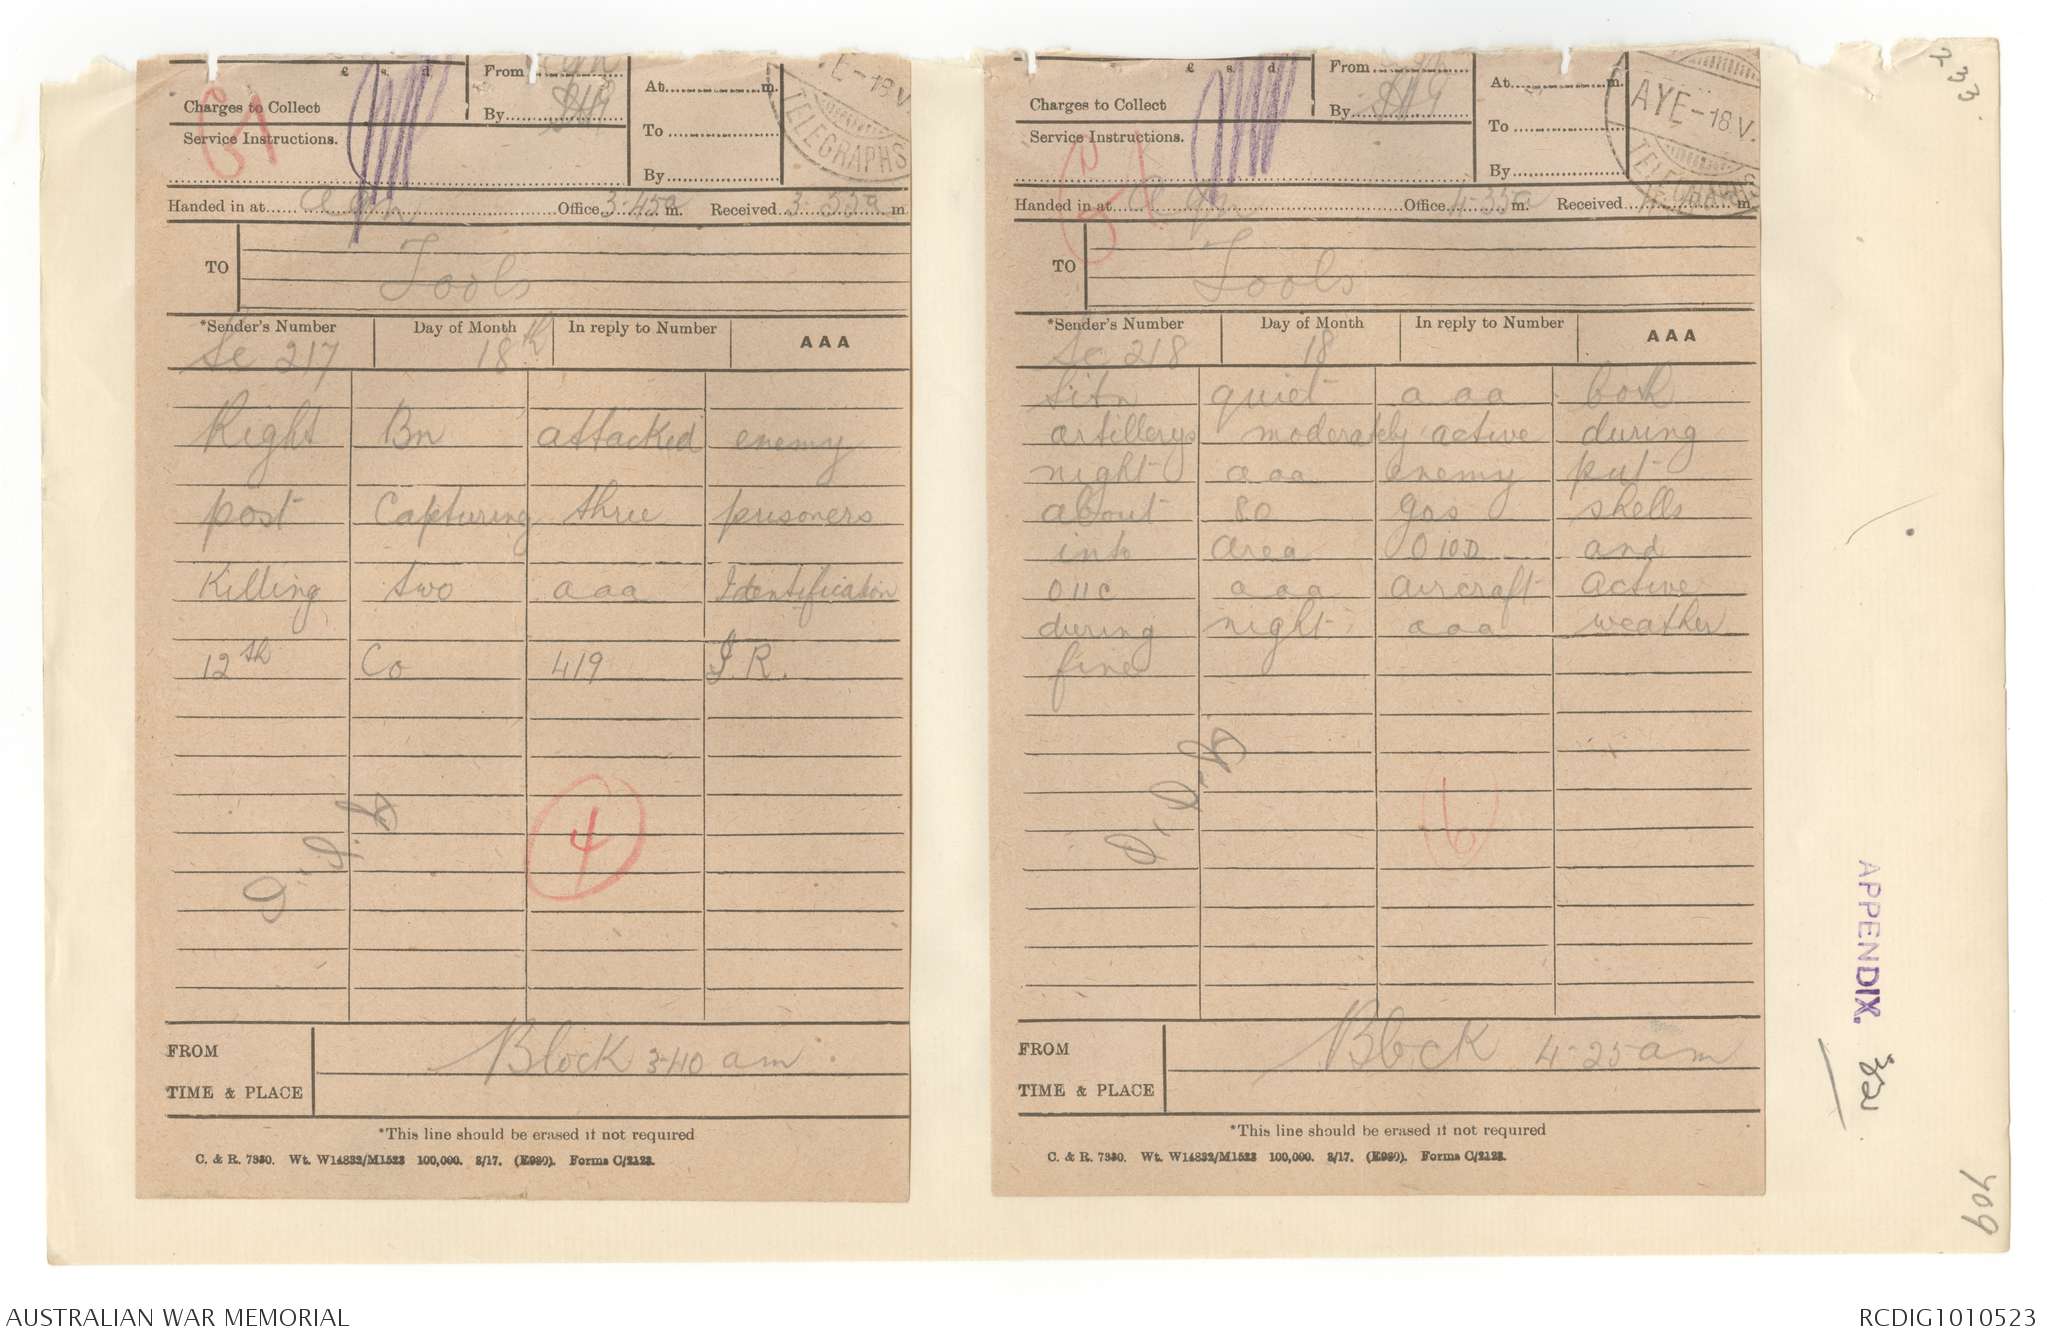 £ s. d.
Charges to Collect
Service Instructions.
From
By
At m.
To
By
E-18.V.
TELEGRAPHS
Handed in at Office 3-45a m. Received 3-55a m
TO Tools
*Sender's Number Day of Month In reply to Number AAA
Sc 217 18th
Right Bn attacked enemy
post Capturing three prisoners
Killing two aaa Identification
12th Co 419 I.R.
4
FROM Block 3-40 am
TIME & PLACE
*This line should be erased if not required
C. & R. 7330. Wt. W14832/M1523 100,000. 3/17. (E989). Forms C/2123.
£ s. d.
Charges to Collect
Service Instructions.
From
By
At m.
To
By
AYE-18.V.
TELEGRAPHS
Handed in at Office 4-35a m. Received m
TO Tools
*Sender's Number Day of Month In reply to Number AAA
Sc 218 18
Sitn quiet aaa both
artillerys moderately active during
night aaa enemy put
about 80 gas shells
into area O10D and
O11C aaa aircraft active
during night aaa weather
fine
6
FROM Block 4-25 am
TIME & PLACE
*This line should be erased if not required
C. & R. 7330. Wt. W14832/M1523 100,000. 3/17. (E989). Forms C/2123.
233
APPENDIX. 32
409
AUSTRALIAN WAR MEMORIAL
RCDIG1010523